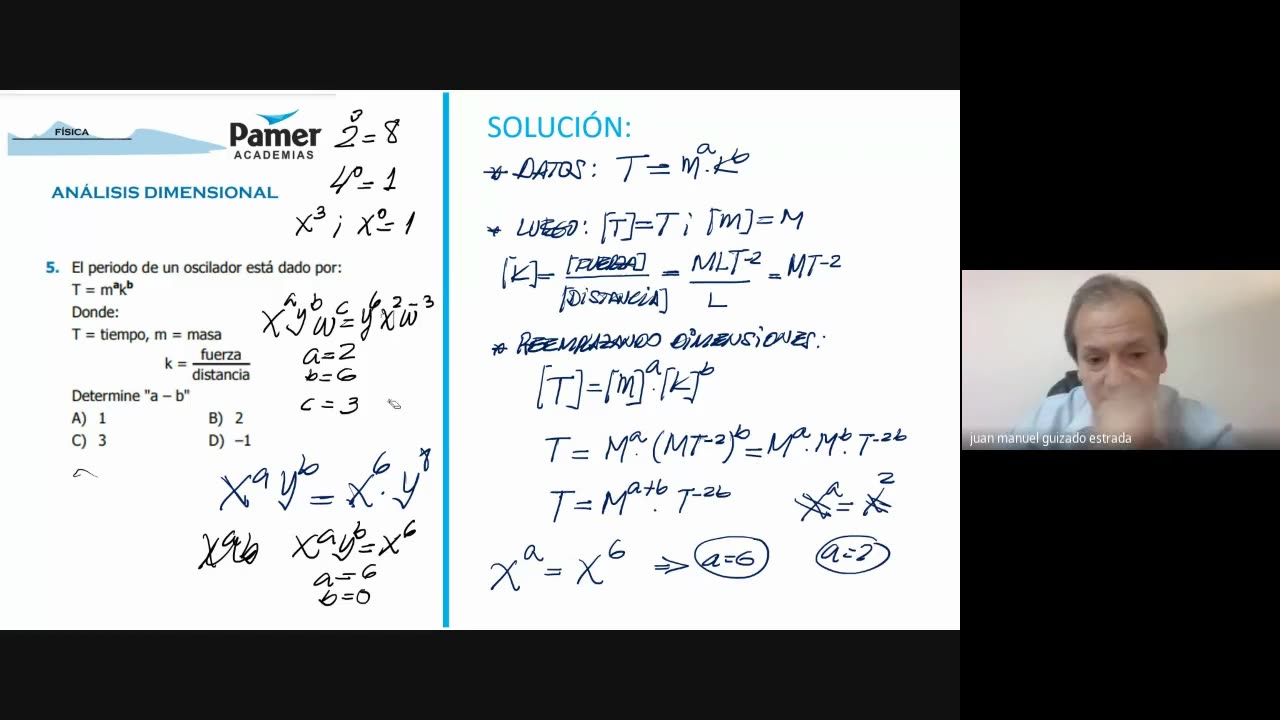 FÍSICA
Pamer
ACADEMIAS
ANÁLISIS DIMENSIONAL
2³ = 8
4⁰ = 1
x³ ; x⁰ = 1
5. El periodo de un oscilador está dado por:
T = mᵃkᵇ
Donde:
T = tiempo, m = masa
k = fuerza
distancia
Determine "a – b"
A) 1 B) 2
C) 3 D) –1
xᵃyᵇωᶜ = y⁶x²ω⁻³
a = 2
b = 6
c = 3
xᵃyᵇ = x⁶·y⁸
xᵃyᵇ = x⁶
a = 6
b = 0
SOLUCIÓN:
* DATOS: T = mᵃ·Kᵇ
* LUEGO: [T] = T ; [m] = M
[K] = [FUERZA] = MLT⁻² = MT⁻²
[DISTANCIA] L
* REEMPLAZANDO DIMENSIONES:
[T] = [m]ᵃ·[K]ᵇ
T = Mᵃ·(MT⁻²)ᵇ = Mᵃ·Mᵇ·T⁻²ᵇ
T = Mᵃ⁺ᵇ·T⁻²ᵇ
xᵃ = x²
xᵃ = x⁶ ⇒ a=6
a=2
juan manuel guizado estrada